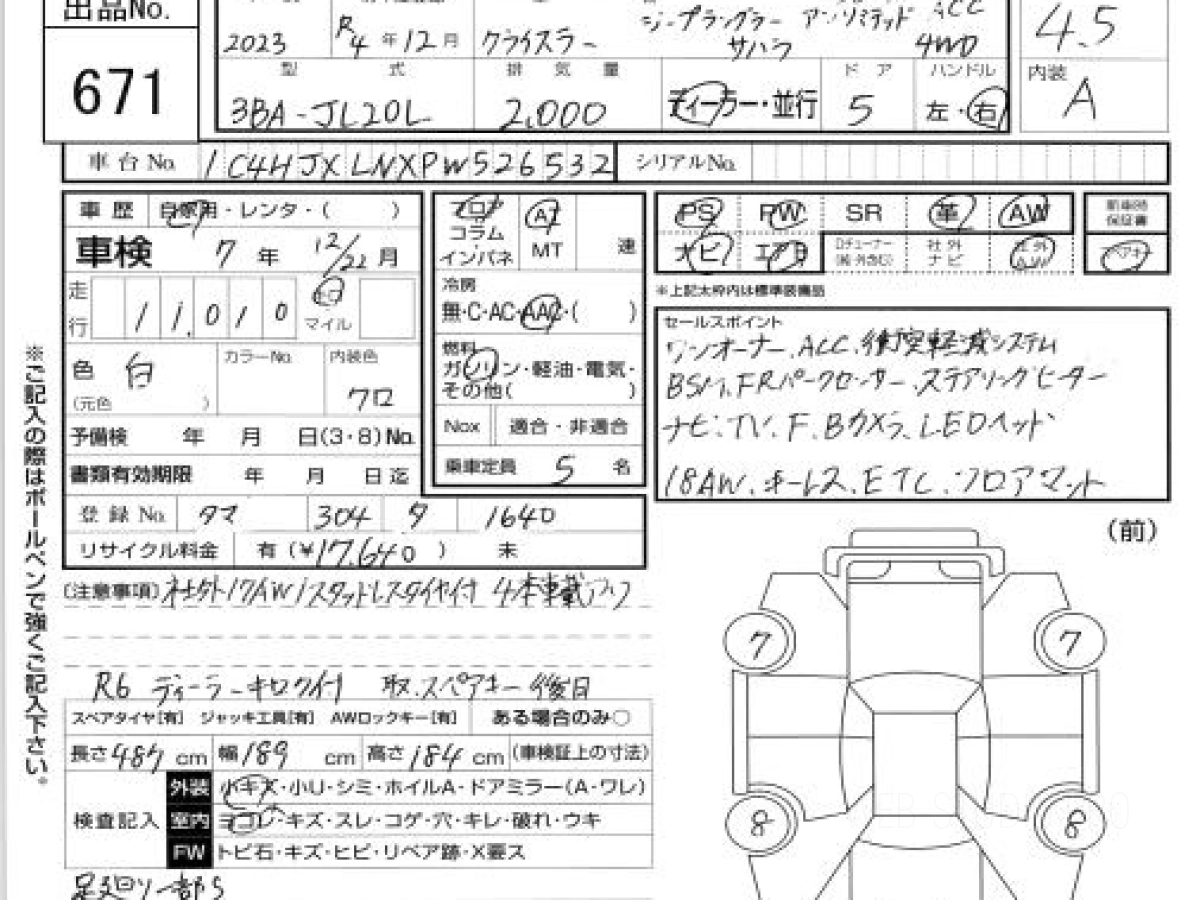 出品No.
671
2023
R4年12月
クライスラー
ジープラングラー アンリミテッド ACC
サハラ 4WD
4.5
型式
3BA-JL20L
排気量
2,000
ディーラー・並行
ドア
5
ハンドル
左・右
内装
A
車台No. 1C4HJXLNXPW526532
シリアルNo.
車歴 自家用・レンタ・( )
車検 7年 12/22月
走行 11,010 キロ
マイル
色 白
(元色 )
カラーNo.
内装色
クロ
予備検 年 月 日(3・8)No.
書類有効期限 年 月 日迄
登録No. タマ 304 タ 1640
リサイクル料金 有(¥17,640 ) 未
フロア
コラム
インパネ
AT
MT
速
冷房
無・C・AC・AAC・( )
燃料
ガソリン・軽油・電気・
その他( )
Nox 適合・非適合
乗車定員 5 名
PS PW SR 革 AW
ナビ エアB Dチューナー 社外ナビ 社外AW
新車時保証書
スペアキー
※上記太枠内は標準装備品
セールスポイント
ワンオーナー、ACC、衝突軽減システム
BSM、FRパークセンサー、ステアリングヒーター
ナビ、TV、F、Bカメラ、LEDヘッド
18AW、キーレス、ETC、フロアマット
※ご記入の際はボールペンで強くご記入下さい。
(注意事項) 社外17AWスタッドレスタイヤ付 4本車載
R6 ディーラーキロク付 取、スペアキー後日
スペアタイヤ[有] ジャッキ工具[有] AWロックキー[有] ある場合のみ○
長さ487cm 幅189cm 高さ184cm (車検証上の寸法)
検査記入
外装 小キズ・小U・シミ・ホイルA・ドアミラー(A・ワレ)
室内 ヨゴレ・キズ・スレ・コゲ・穴・キレ・破れ・ウキ
FW トビ石・キズ・ヒビ・リペア跡・X要ス
足廻り一部S
(前)
7 7
8 8